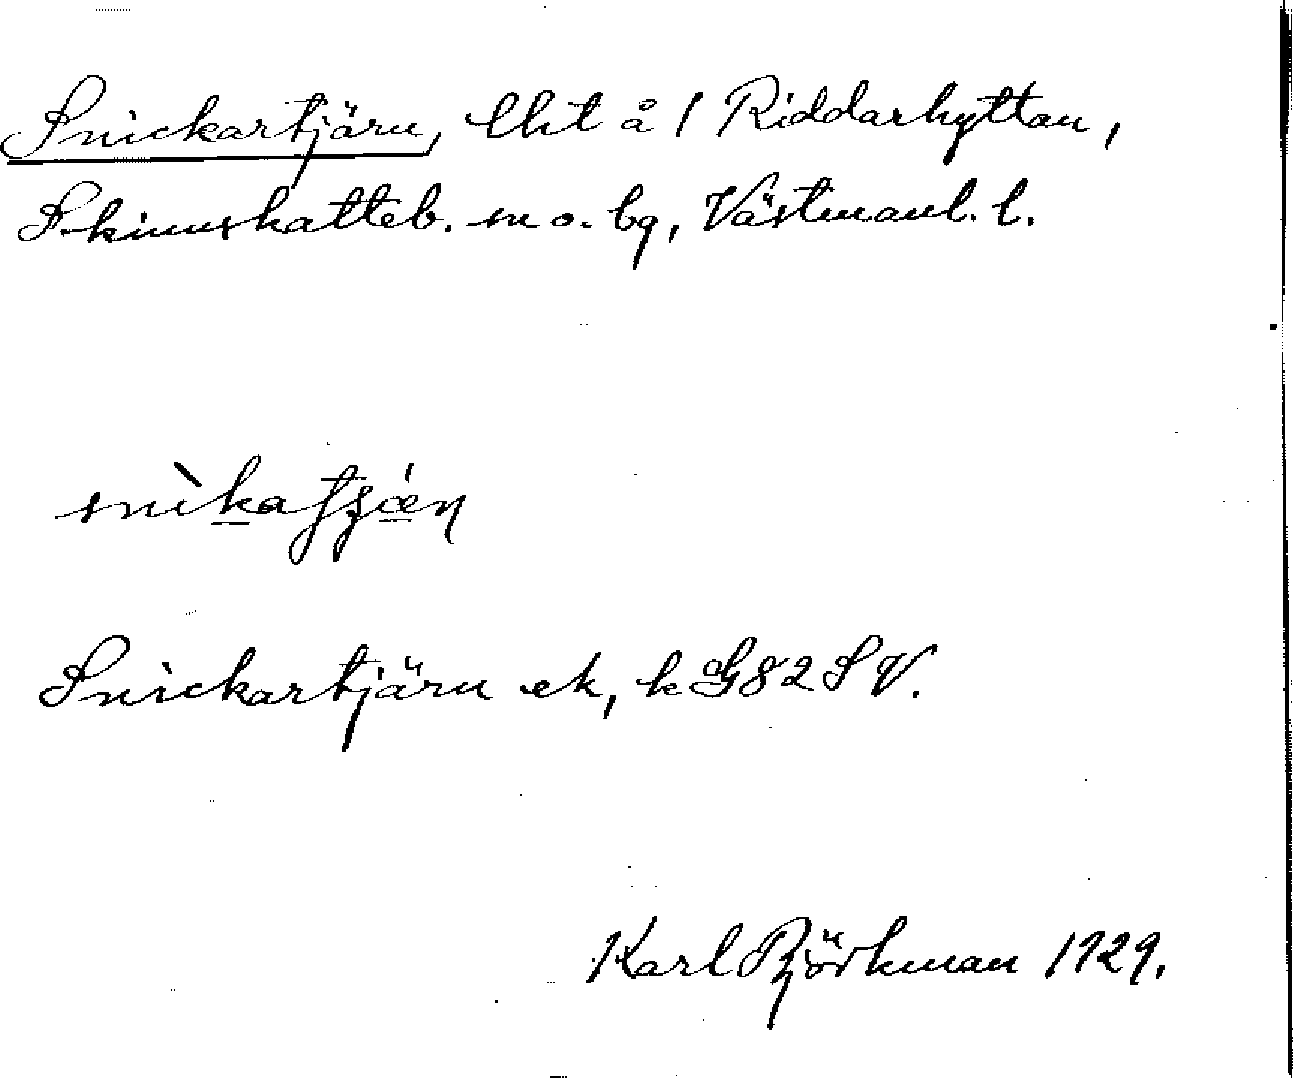 Snickartjärn, lht å 1 Riddarhyttan,
Skinnskatteb. sn o. bg, Västmanl. l.
Snickartjärn ek, k G82 SV.
Karl Björkman 1929.